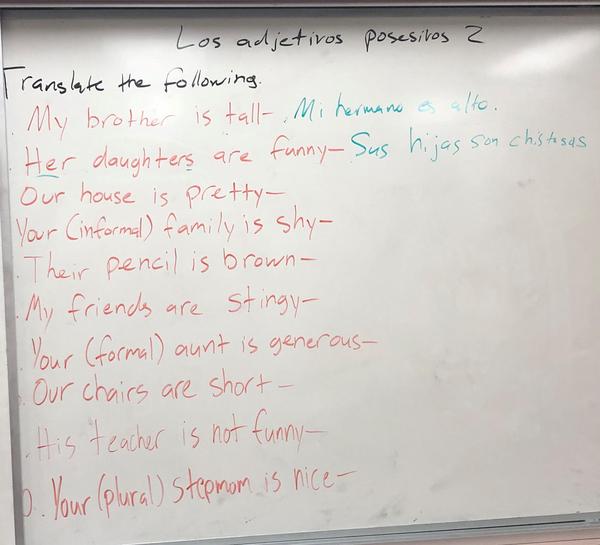 Los adjetivos posesivos 2
Translate the following.
. My brother is tall- Mi hermano es alto.
. Her daughters are funny- Sus hijas son chistosas
Our house is pretty-
Your (informal) family is shy-
. Their pencil is brown-
. My friends are stingy-
. Your (formal) aunt is generous-
. Our chairs are short-
. His teacher is not funny-
0. Your (plural) stepmom is nice-